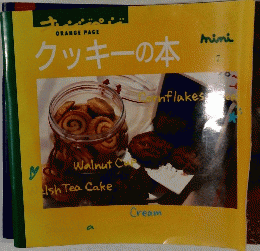 オレンジページ
ORANGE PAGE
クッキーの本
mini
nflakes
Walnut C
lsh Tea Cake
Cream
a